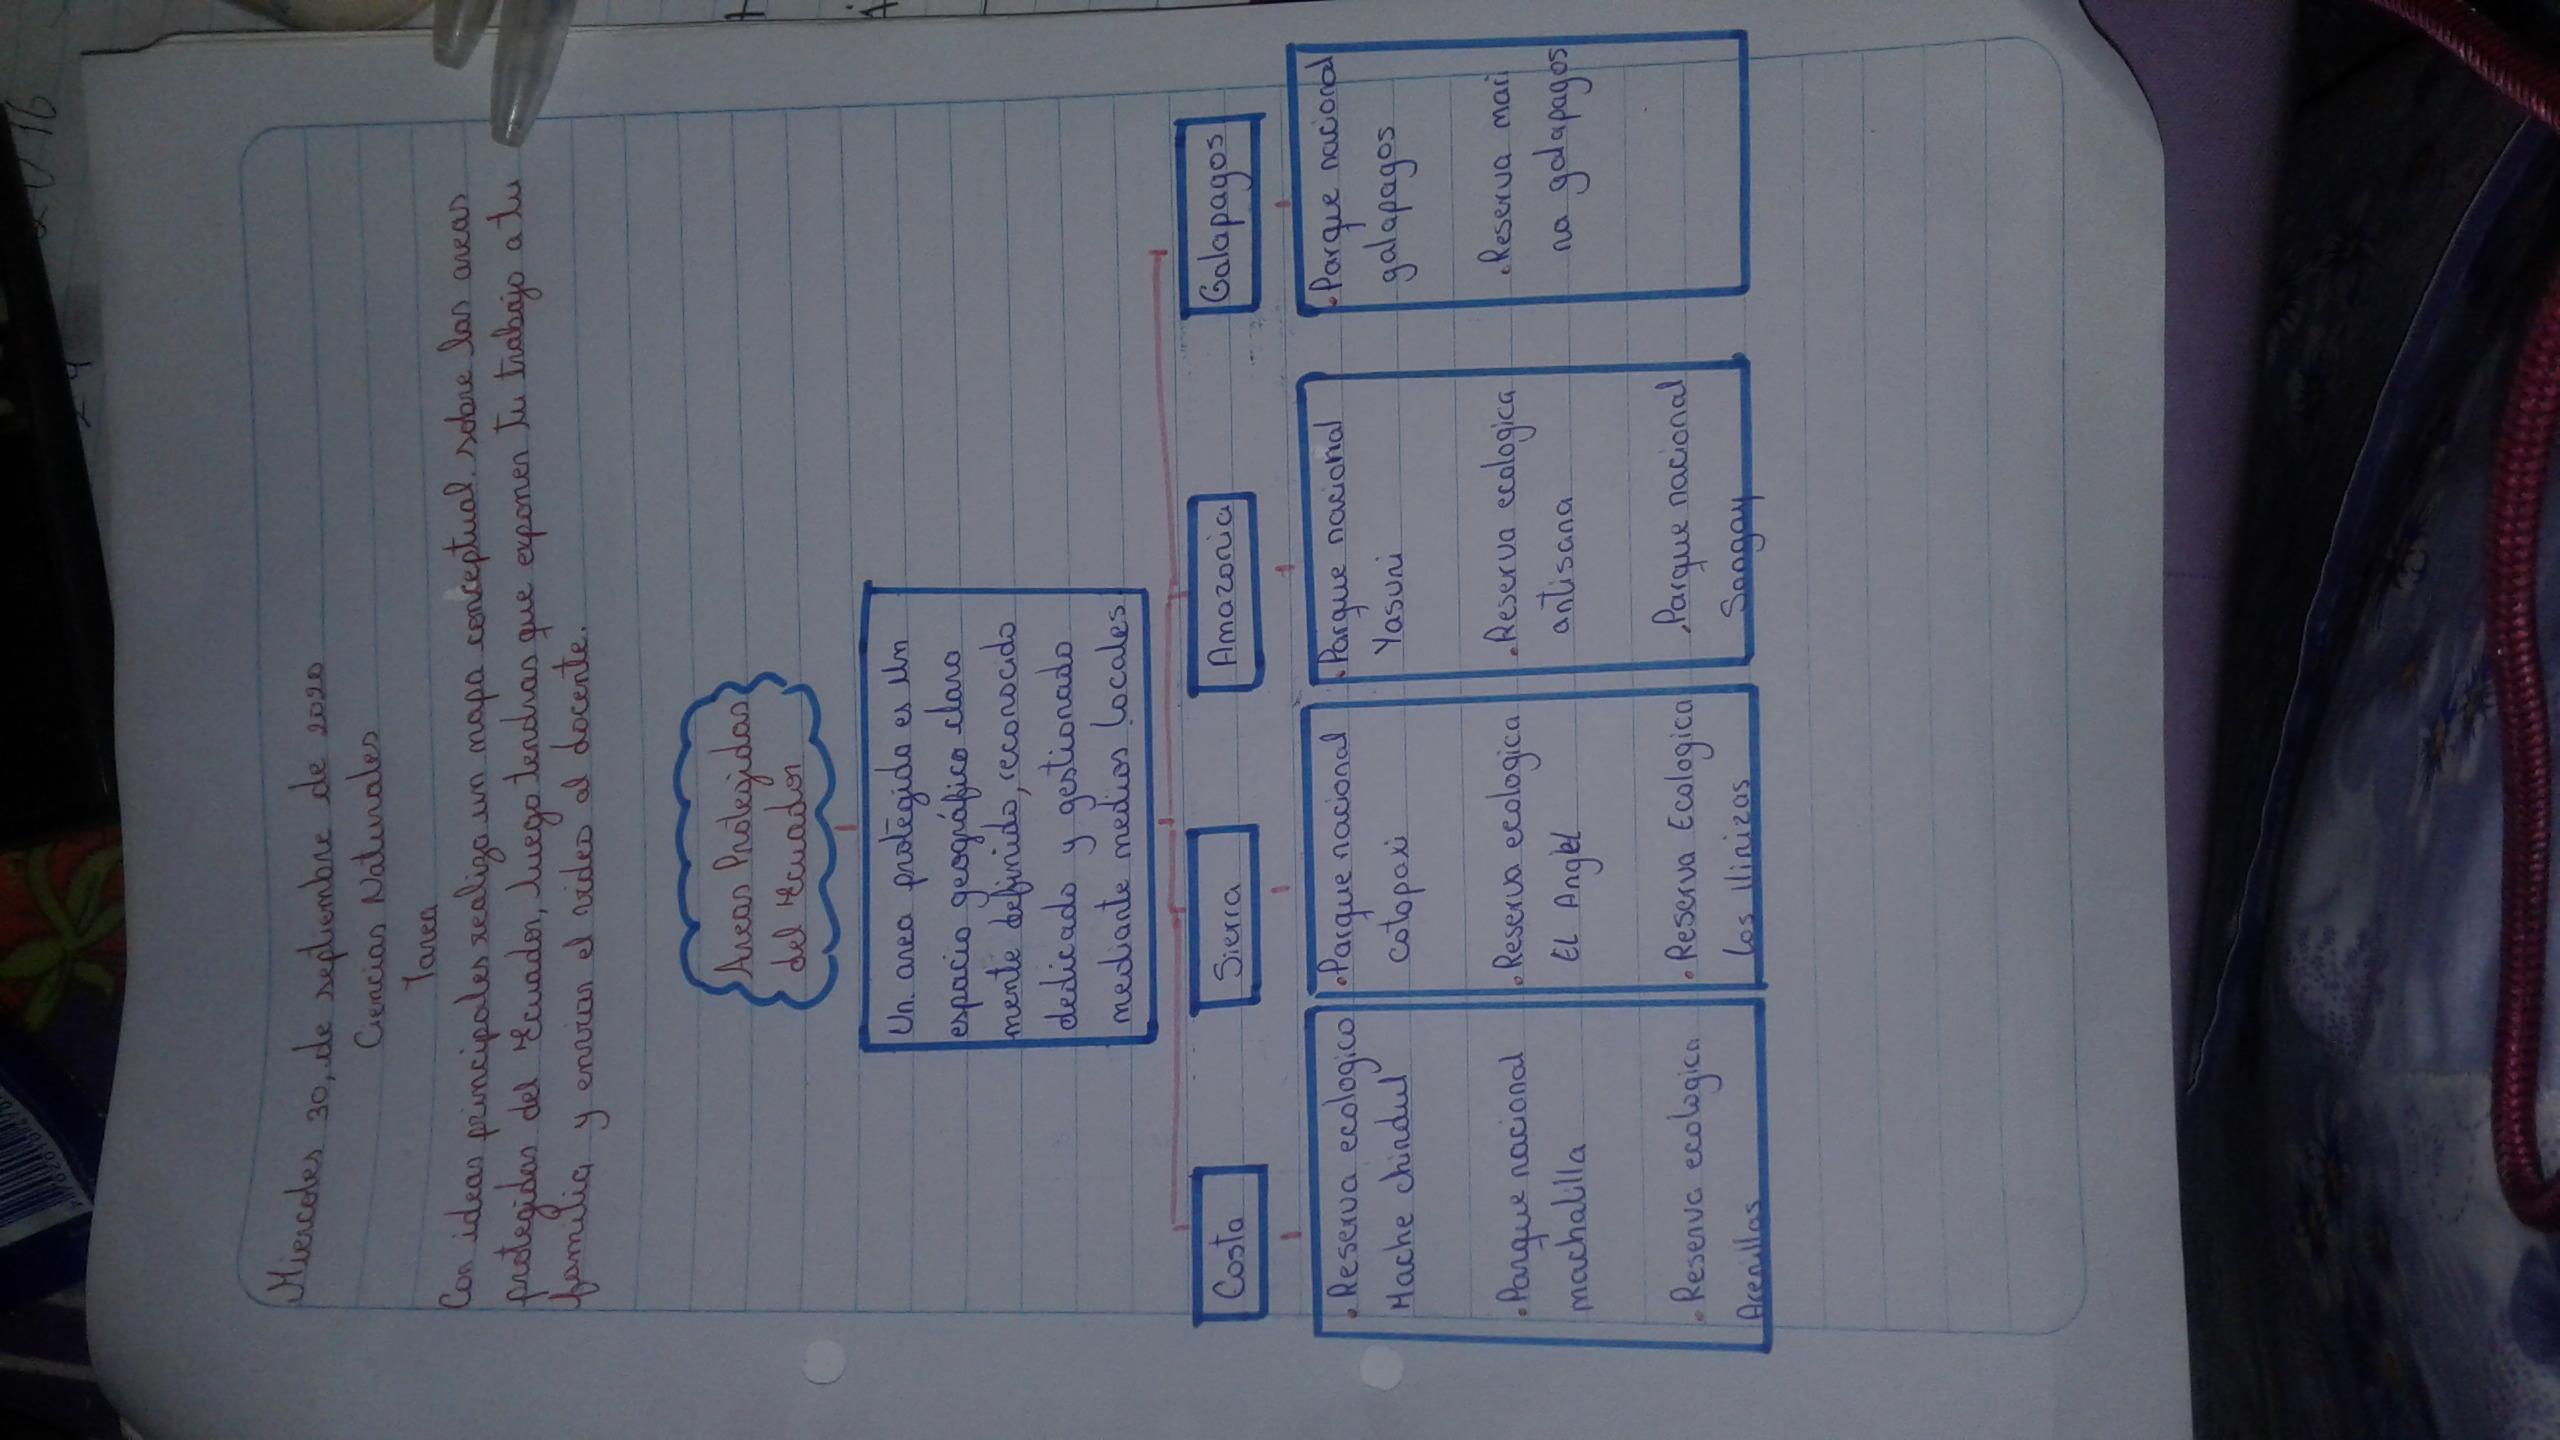 Miercoles 30, de septiembre de 2020
Ciencias Naturales
Tarea
Con ideas principales realiza un mapa conceptual. sobre las areas
protegidas del Ecuador, luego tendras que exponer tu trabajo a tu
familia y enviar el video al docente.
Areas Protegidas
del Ecuador
Un area protegida es un
espacio geográfico clara
mente definido, reconocido
dedicado y gestionado
mediante medios locales
Costa
Sierra
Amazonia
Galapagos
.Reserva ecologico
Mache chindul
.Parque nacional
machalilla
.Reserva ecologica
Arenillas
.Parque nacional
cotopaxi
.Reserva ecologica
El Angel
.Reserva Ecologica
los Ilinizas
.Parque nacional
Yasuni
.Reserva ecologica
antisana
.Parque nacional
Sangay
.Parque nacional
galapagos
.Reserva mari
na galapagos